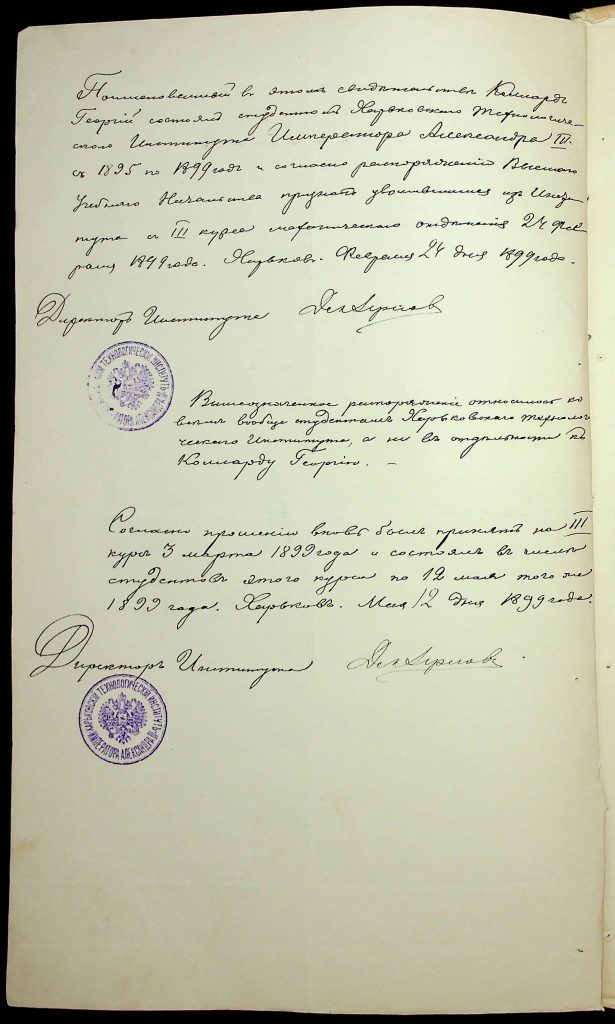 Поименованный въ этомъ свидѣтельствѣ Коллардъ
Георгій состоялъ студентомъ Харьковскаго Технологиче-
скаго Института Императора Александра III.
съ 1895 по 1899 годъ и согласно распоряженію Высшаго
Учебнаго Начальства признанъ уволившимся изъ Инсти-
тута съ III курса механическаго отдѣленія 24 Фев-
раля 1899 года. Харьковъ. Февраля 24 дня 1899 года.
Директоръ Института
ТЕХНОЛОГИЧЕСКІЙ ИНСТИТУТЪ ИМПЕРАТОРА АЛЕКСАНДРА III
Вышеозначенное распоряженіе относилось ко
всѣмъ вообще студентамъ Харьковскаго Технологи-
ческаго Института, а не въ отдѣльности къ
Колларду Георгію. —
Согласно прошенію вновь былъ принятъ на III
курсъ 3 марта 1899 года и состоялъ въ числѣ
студентовъ этого курса по 12 мая того же
1899 года. Харьковъ. Мая 12 дня 1899 года.
Директоръ Института
ХАРЬКОВСКІЙ ТЕХНОЛОГИЧЕСКІЙ ИНСТИТУТЪ ИМПЕРАТОРА АЛЕКСАНДРА III